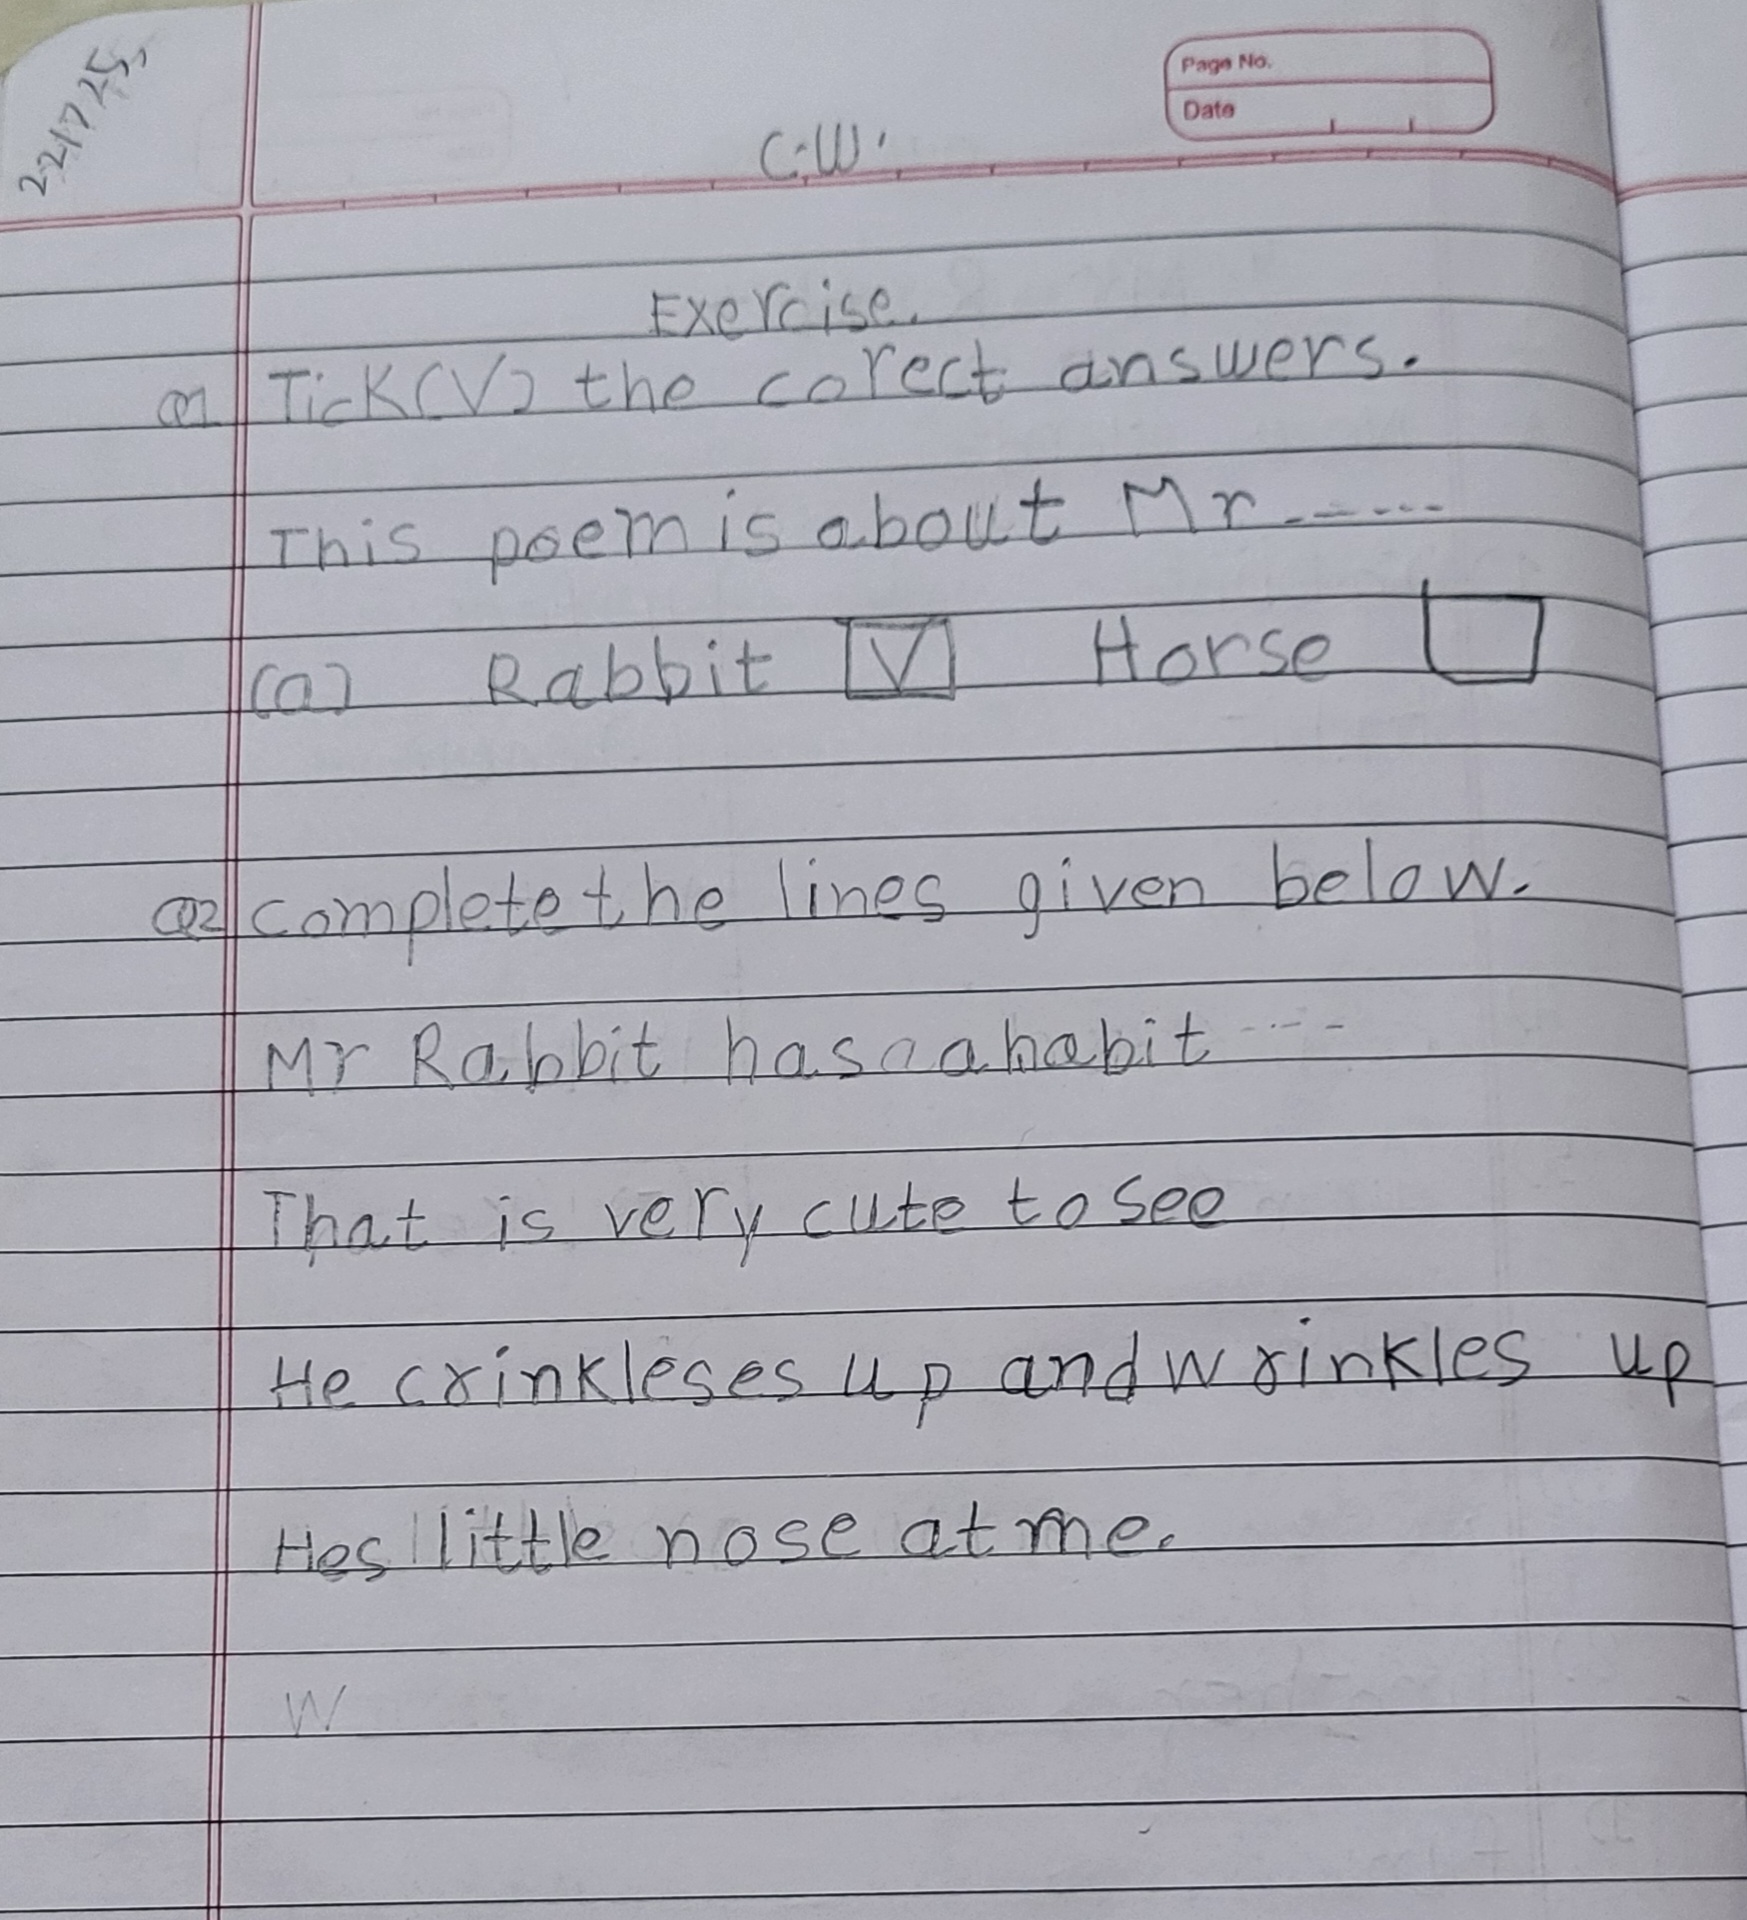 22/7/25,
Page No.
Date
C.W.
Exercise.
Q1 Tick(V) the corect answers.
This poem is about Mr ------
(a) Rabbit V Horse
Q2 complete the lines given below.
Mr Rabbit has a a habit ----
That is very cute to see
He crinkleses up and wrinkles up
Hes little nose at me.
W